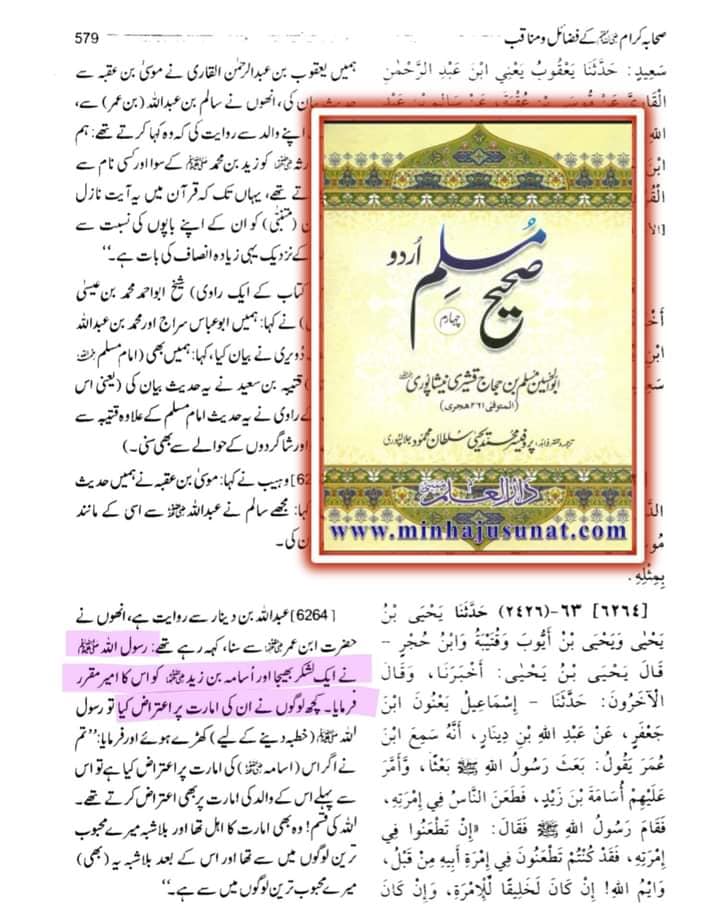 صحابہ کرام رضی اللہ عنہم کے فضائل و مناقب
579
سَعِيدٍ: حَدَّثَنَا يَعْقُوبُ يَعْنِي ابْنَ عَبْدِ الرَّحْمٰنِ
ہمیں یعقوب بن عبدالرحمٰن القاری نے موسیٰ بن عقبہ سے
ان کی، انھوں نے سالم بن عبداللہ (بن عمر) سے،
اپنے والد سے روایت کی کہ وہ کہا کرتے تھے: ہم
کو زید بن محمد ﷺ کے سوا اور کسی نام سے
تے تھے، یہاں تک کہ قرآن میں یہ آیت نازل
(متبنّٰی) کو ان کے اپنے باپوں کی نسبت سے
کے نزدیک یہی زیادہ انصاف کی بات ہے۔‘‘
کتاب کے ایک راوی) شیخ ابواحمد محمد بن عیسیٰ
نے کہا: ہمیں ابوعباس سراج اور محمد بن عبداللہ
دویری نے بیان کیا، کہا: ہمیں بھی (امام مسلم رحمہ اللہ
قتیبہ بن سعید نے یہ حدیث بیان کی (یعنی اس
کے راوی نے یہ حدیث امام مسلم کے علاوہ قتیبہ سے
اور شاگردوں کے حوالے سے بھی سنی۔)
وہیب نے کہا: موسیٰ بن عقبہ نے ہمیں حدیث
کہا: مجھے سالم نے عبداللہ رضی اللہ عنہ سے اسی کے مانند
ن کی۔
بِمِثْلِهِ.
صحیح مسلم اردو
چہارم
ابوالحسین مسلم بن حجاج قشیری نیشاپوری رحمہ اللہ
(المتوفیٰ ۲۶۱ ہجری)
پروفیسر محمد یحییٰ سلطان محمود جلالپوری
دارالعلم
www.minhajusunat.com
[٦٢٦٤] ٦٣-(٢٤٢٦) حَدَّثَنَا يَحْيَى بْنُ
يَحْيَى وَيَحْيَى بْنُ أَيُّوبَ وَقُتَيْبَةُ وَابْنُ حُجْرٍ –
قَالَ يَحْيَى بْنُ يَحْيَى: أَخْبَرَنَا، وَقَالَ
الْآخَرُونَ: حَدَّثَنَا – إِسْمَاعِيلُ يَعْنُونَ ابْنَ
جَعْفَرٍ، عَنْ عَبْدِ اللهِ بْنِ دِينَارٍ، أَنَّهُ سَمِعَ ابْنَ
عُمَرَ يَقُولُ: بَعَثَ رَسُولُ اللهِ ﷺ بَعْثًا، وَأَمَّرَ
عَلَيْهِمْ أُسَامَةَ بْنَ زَيْدٍ، فَطَعَنَ النَّاسُ فِي إِمْرَتِهِ،
فَقَامَ رَسُولُ اللهِ ﷺ فَقَالَ: «إِنْ تَطْعَنُوا فِي
إِمْرَتِهِ، فَقَدْ كُنْتُمْ تَطْعَنُونَ فِي إِمْرَةِ أَبِيهِ مِنْ قَبْلُ،
وَايْمُ اللهِ! إِنْ كَانَ لَخَلِيقًا لِلْإِمْرَةِ، وَإِنْ كَانَ
[6264] عبداللہ بن دینار سے روایت ہے، انھوں نے
حضرت ابن عمر رضی اللہ عنہما سے سنا، کہہ رہے تھے: رسول اللہ ﷺ
نے ایک لشکر بھیجا اور اُسامہ بن زید رضی اللہ عنہما کو اس کا امیر مقرر
فرمایا۔ کچھ لوگوں نے ان کی امارت پر اعتراض کیا تو رسول
اللہ ﷺ (خطبہ دینے کے لیے) کھڑے ہوئے اور فرمایا: ’’تم
نے اگر اس (اسامہ رضی اللہ عنہ) کی امارت پر اعتراض کیا ہے تو اس
سے پہلے اس کے والد کی امارت پر بھی اعتراض کرتے تھے۔
اللہ کی قسم! وہ بھی امارت کا اہل تھا اور بلاشبہ میرے محبوب
ترین لوگوں میں سے تھا اور اس کے بعد بلاشبہ یہ (بھی)
میرے محبوب ترین لوگوں میں سے ہے۔‘‘